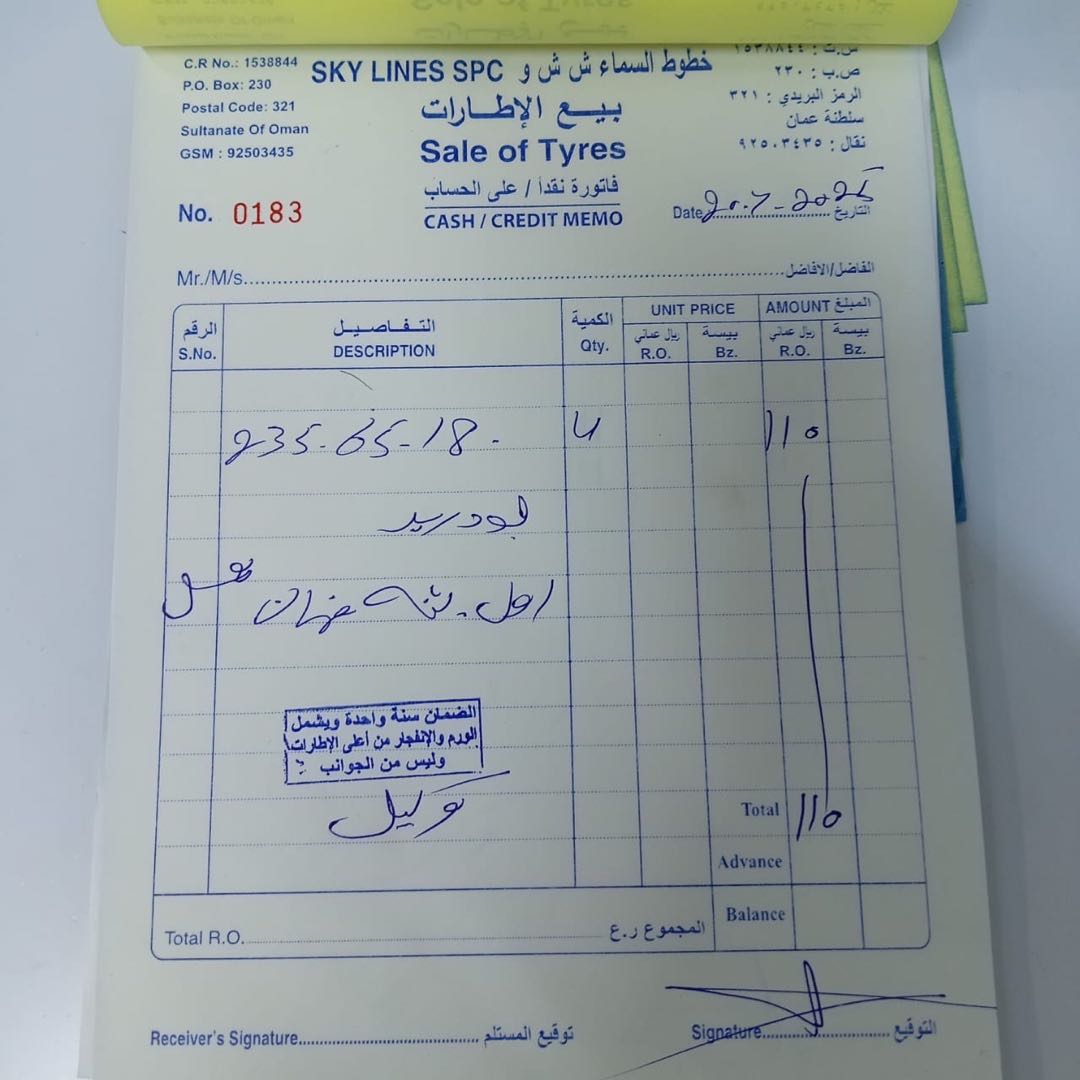 C.R No.: 1538844
P.O. Box: 230
Postal Code: 321
Sultanate Of Oman
GSM : 92503435
خطوط السماء ش ش و SKY LINES SPC
بيع الإطارات
Sale of Tyres
فاتورة نقداً / على الحساب
CASH / CREDIT MEMO
س.ت : ١٥٣٨٨٤٤
ص.ب : ٢٣٠
الرمز البريدي : ٣٢١
سلطنة عمان
نقال : ٩٢٥٠٣٤٣٥
No. 0183
Date 20.7-2025 التاريخ
Mr./M/s. الفاضل/الافاضل
الرقم التفاصيل الكمية UNIT PRICE المبلغ AMOUNT
S.No. DESCRIPTION Qty. ريال عماني R.O. بيسة Bz. ريال عماني R.O. بيسة Bz.
235-65-18. 4 110
الضمان سنة واحدة ويشمل
الورم والإنفجار من أعلى الإطارات
وليس من الجوانب
وكيل
Total 110
Advance
Balance
Total R.O. المجموع ر.ع
Receiver's Signature توقيع المستلم Signature التوقيع